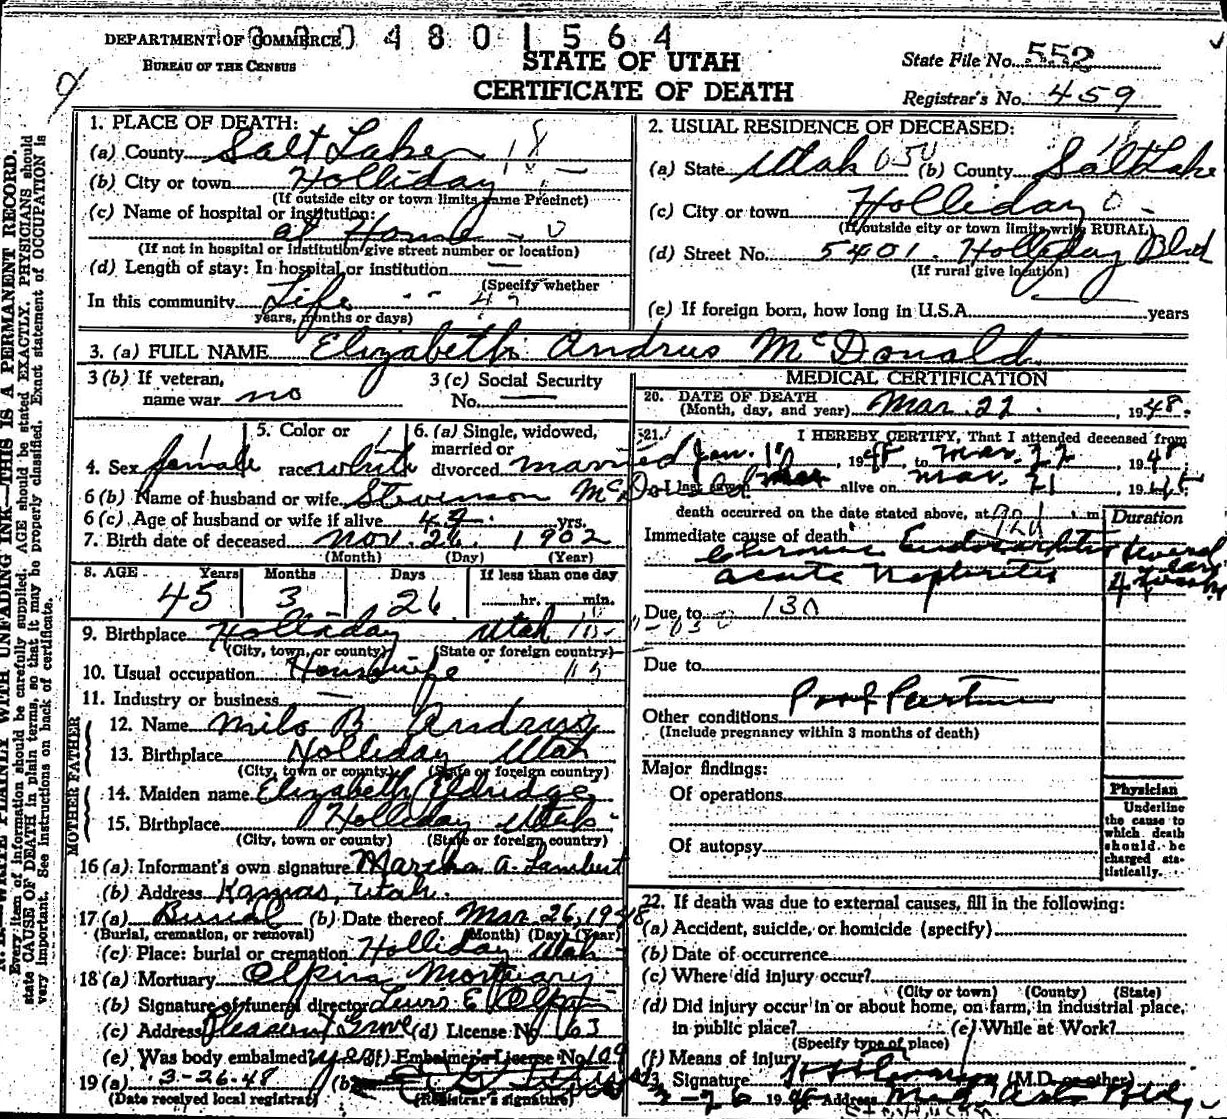 0 4 8 0 1 5 6 4
DEPARTMENT OF COMMERCE
BUREAU OF THE CENSUS
STATE OF UTAH
CERTIFICATE OF DEATH
State File No. 552
Registrar's No. 459
N. B.—WRITE PLAINLY WITH UNFADING INK—THIS IS A PERMANENT RECORD.
Every item of information should be carefully supplied. AGE should be stated EXACTLY. PHYSICIANS should
state CAUSE OF DEATH in plain terms, so that it may be properly classified. Exact statement of OCCUPATION is
very important. See instructions on back of certificate.
1. PLACE OF DEATH:
(a) County Salt Lake 18
(b) City or town Holliday
(If outside city or town limits name Precinct)
(c) Name of hospital or institution:
at Home 0
(If not in hospital or institution give street number or location)
(d) Length of stay: In hospital or institution —
(Specify whether
In this community Life
years, months or days)
2. USUAL RESIDENCE OF DECEASED:
(a) State Utah 050 (b) County Salt Lake
(c) City or town Holliday 0
(If outside city or town limits write RURAL)
(d) Street No. 5401 Holliday Blvd
(If rural give location)
(e) If foreign born, how long in U.S.A. years
3. (a) FULL NAME Elizabeth Andrus McDonald
3 (b) If veteran,
name war no
3 (c) Social Security
No. —
4. Sex female
5. Color or
race white
6. (a) Single, widowed,
married or
divorced married
6 (b) Name of husband or wife Stevenson McDonald
6 (c) Age of husband or wife if alive 49 yrs.
7. Birth date of deceased Nov. 26 1902
(Month) (Day) (Year)
8. AGE Years Months Days If less than one day
45 3 26 hr. min.
9. Birthplace Holladay Utah
(City, town, or county) (State or foreign country)
10. Usual occupation Housewife
11. Industry or business —
FATHER
12. Name Milo B Andrus
13. Birthplace Holliday Utah
(City, town or county) (State or foreign country)
MOTHER
14. Maiden name Elizabeth Eldridge
15. Birthplace Holliday Utah
(City, town or county) (State or foreign country)
16 (a) Informant's own signature Martha A. Lambert
(b) Address Kamas, Utah.
17 (a) Burial (b) Date thereof Mar 26, 1948
(Burial, cremation, or removal) (Month) (Day) (Year)
(c) Place: burial or cremation Holliday Utah
18 (a) Mortuary Olpin Mortuary
(b) Signature of funeral director Lewis E Olpin
(c) Address Pleasant Grove (d) License No 63
(e) Was body embalmed? yes (f) Embalmer's License No 109
19 (a) 3-26-48 (b)
(Date received local registrar) (Registrar's signature)
MEDICAL CERTIFICATION
20. DATE OF DEATH
(Month, day, and year) Mar 22, 1948.
21. I HEREBY CERTIFY, That I attended deceased from
Jan. 1948 to Mar. 22 1948
I last saw her alive on Mar. 21 1948
death occurred on the date stated above, at m
Duration
Immediate cause of death
Chronic Endocarditis several years
acute Nephritis 4
Due to 130
Due to
Other conditions Post Partum
(Include pregnancy within 3 months of death)
Major findings:
Of operations
Of autopsy
Physician
Underline
the cause to
which death
should be
charged sta-
tistically.
22. If death was due to external causes, fill in the following:
(a) Accident, suicide, or homicide (specify)
(b) Date of occurrence
(c) Where did injury occur?
(City or town) (County) (State)
(d) Did injury occur in or about home, on farm, in industrial place,
in public place? (e) While at Work?
(Specify type of place)
(f) Means of injury
23. Signature (M.D. or other)
3-26 1948 Address